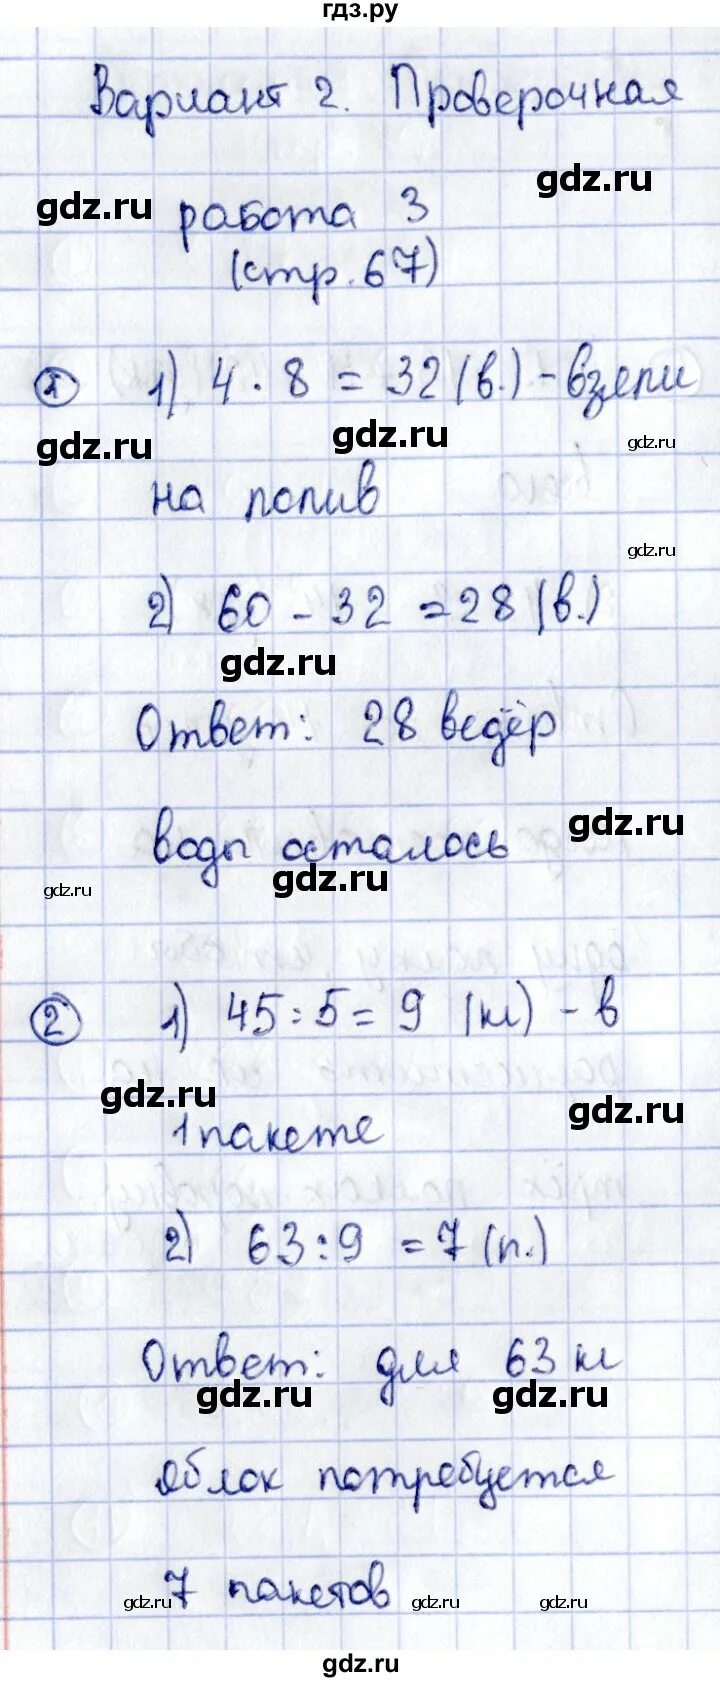 гдз.ру
Вариант 2. Проверочная
gdz.ru
gdz.ru
работа 3
(стр. 67)
1 1) 4 · 8 = 32 (в.) - взяли
gdz.ru
gdz.ru
gdz.ru
на полив
gdz.ru
2) 60 - 32 = 28 (в.)
gdz.ru
Ответ: 28 ведёр
gdz.ru
воды осталось
gdz.ru
gdz.ru
2 1) 45 : 5 = 9 (кг) - в
gdz.ru
gdz.ru
1 пакете
2) 63 : 9 = 7 (п.)
Ответ: для 63 кг
gdz.ru
gdz.ru
яблок потребуется
7 пакетов
gdz.ru
gdz.ru
gdz.ru
gdz.ru